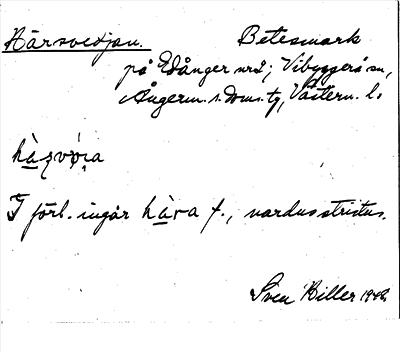 Härsvedjan. Betesmark
på Edånger nr 2; Vibyggerå sn,
Ångerm. s. Doms. tg, Västern. l.
I förl. ingår hära f., nardus strictus.
Sven Hiller 1942